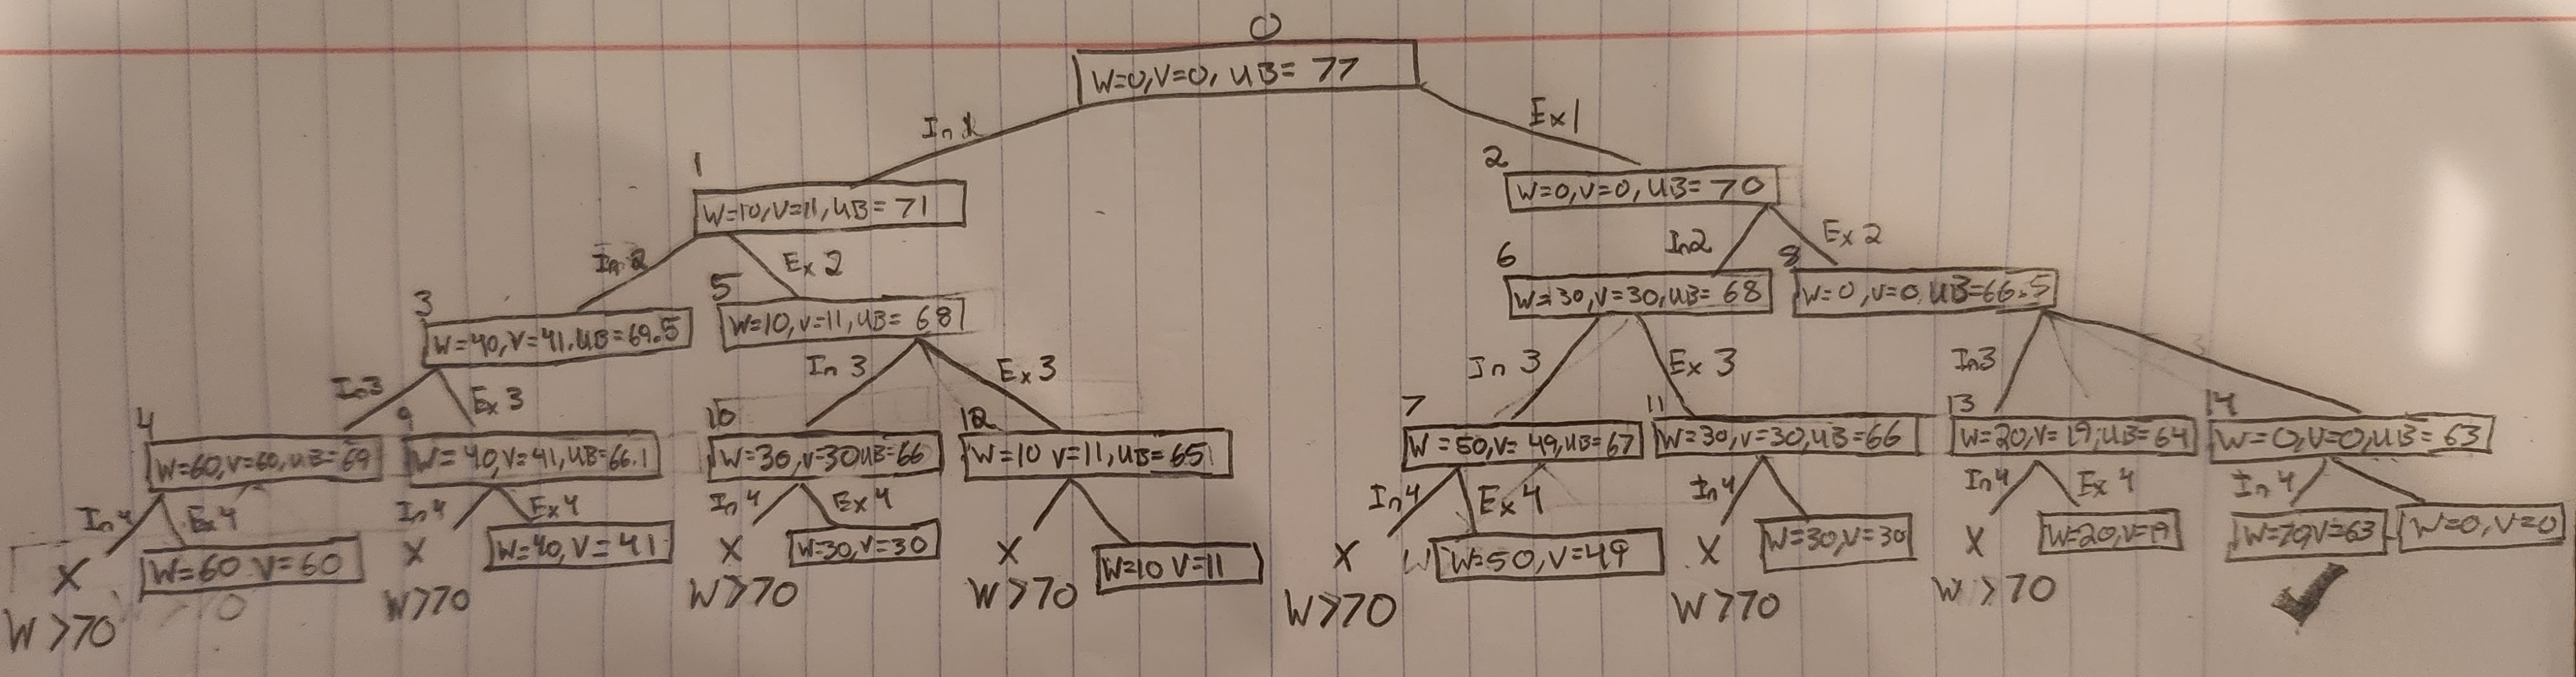 0
W=0,V=0, UB= 77
In 1
Ex1
1
W=10,V=11,UB= 71
2
W=0,V=0,UB= 70
In 2
Ex 2
In2
Ex 2
3
W=40,V=41,UB=69.5
5
W=10,V=11,UB= 68
6
W=30,V=30,UB= 68
8
W=0,V=0,UB=66.5
In3
Ex 3
In 3
Ex 3
In 3
Ex 3
In3
4
W=60,V=60,UB=69
9
W=40,V=41,UB=66.1
10
W=30,V=30UB=66
12
W=10 V=11,UB=65
7
W=50,V=49,UB=67
11
W=30,V=30,UB=66
13
W=20,V=19,UB=64
14
W=0,V=0,UB=63
In4
Ex4
In4
Ex4
In4
Ex4
In4
Ex4
In4
In4
Ex 4
In 4
X
W=60 V=60
X
W=40,V=41
X
W=30,V=30
X
W=10 V=11
X
W=50,V=49
X
W=30,V=30
X
W=20,V=19
W=70,V=63
W=0,V=0
W>70
W>70
W>70
W>70
W>70
W>70
W>70
✓